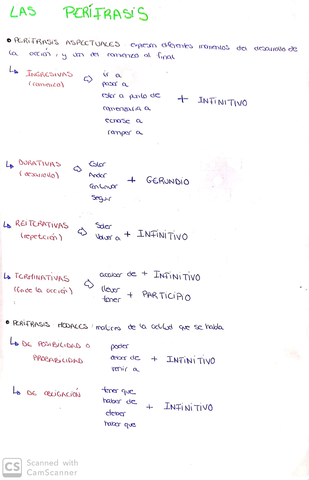 LAS PERÍFRASIS
• PERÍFRASIS ASPECTUALES expresa diferentes momentos del desarrollo de
la acción, y van del comienzo al final
↳ INGRESIVAS ⇨ ir a
(comienzo) pasar a
estar a punto de + INFINITIVO
comenzar a
echarse a
romper a
↳ DURATIVAS ⇨ Estar
(desarrollo) Andar + GERUNDIO
Continuar
Seguir
↳ REITERATIVAS ⇨ Soler + INFINITIVO
(repetición) Volver a
↳ TERMINATIVAS ⇨ acabar de + INFINITIVO
(fin de la acción) llevar + PARTICIPIO
tener
• PERÍFRASIS MODALES: matices de la actitud que se habla
↳ DE POSIBILIDAD O poder
PROBABILIDAD deber de + INFINITIVO
venir a
↳ DE OBLIGACIÓN tener que
haber de + INFINITIVO
deber
haber que
CS Scanned with
CamScanner